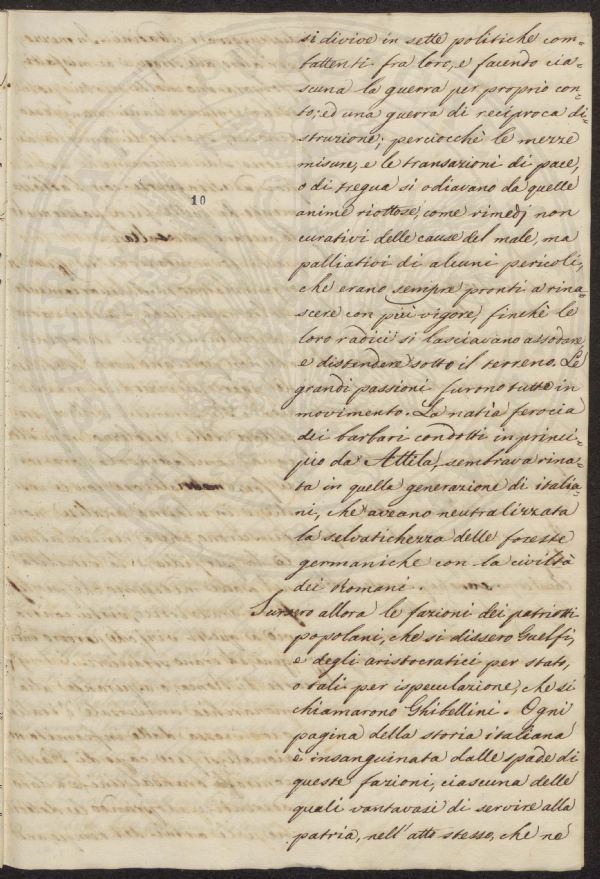 si divive in sette politiche com=
battenti fra loro, e facendo cia=
scuna la guerra per proprio con=
to; ed una guerra di reciproca di=
struzione; perciocchè le mezze
misure, e le transazioni di pace,
o di tregua si odiavano da quelle
10
anime riottose, come rimedj non
curativi delle cause del male, ma
palliativi di alcuni pericoli,
che erano sempre pronti a rina=
scere con più vigore, finchè le
loro radici si lasciavano assodare
e distendere sotto il terreno. Le
grandi passioni furono tutte in
movimento. La natìa ferocia
dei barbari condotti in princi=
pio da Attila, sembrava rina=
ta in quella generazione di italia=
ni, che aveano neutralizzata
la selvatichezza delle foreste
germaniche con la civiltà
dei Romani.
Sursero allora le fazioni dei patriotti
popolani, che si dissero Guelfi,
e degli aristocratici per stato,
o tali per ispeculazione, che si
chiamarono Ghibellini. Ogni
pagina della storia italiana
è insanguinata dalle spade di
queste fazioni, ciascuna delle
quali vantavasi di servire alla
patria, nell'atto stesso, che ne